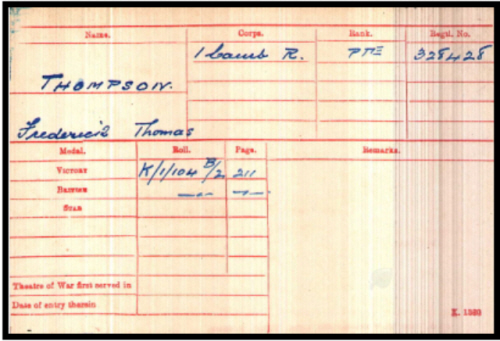 Name. Corps. Rank. Regtl. No.
1 Camb R. PTE 325425
THOMPSON.
Frederick Thomas
Medal. Roll. Page. Remarks.
VICTORY K/1/104 B/2 211
BRITISH —〃— —〃—
STAR
Theatre of War first served in
Date of entry therein
K. 1380